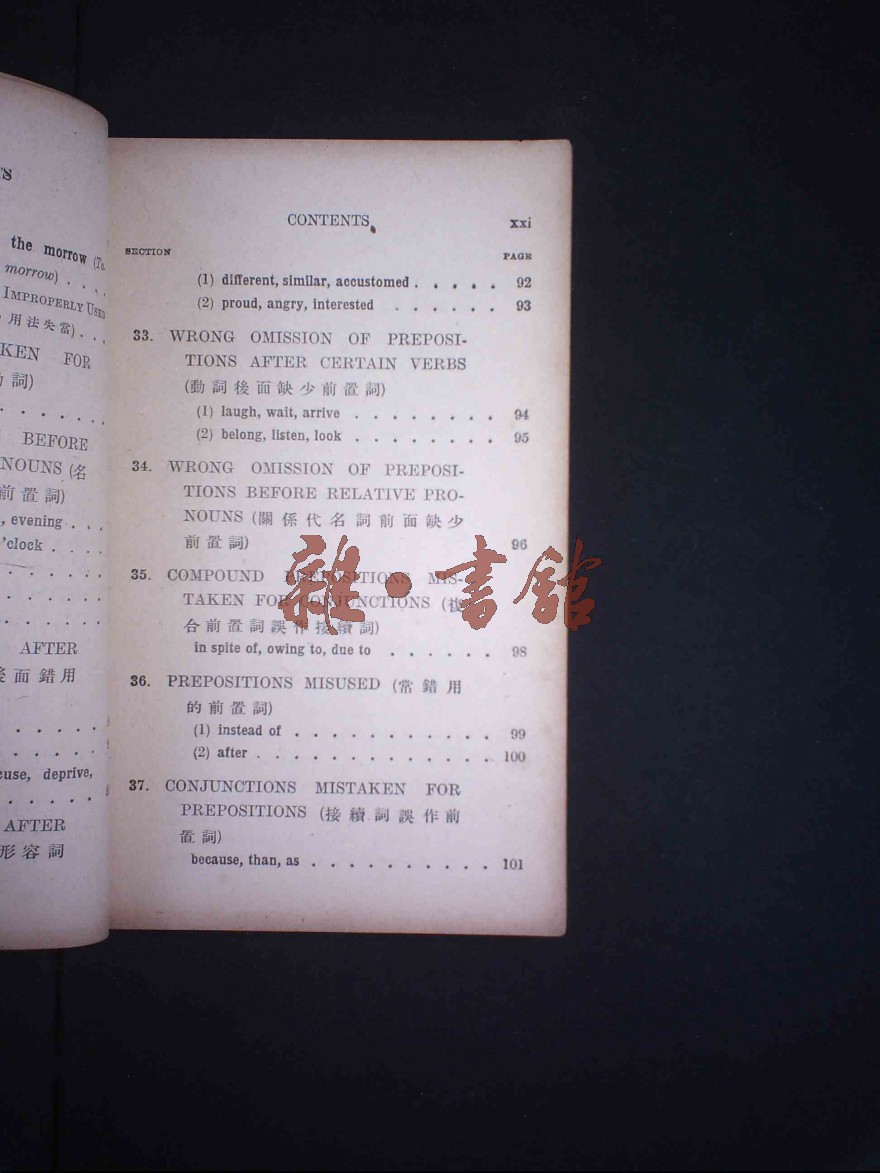 TS
the morrow (To-
morrow) . . .
IMPROPERLY USED
用法失當) . . .
KEN FOR
詞)
BEFORE
NOUNS (名
前置詞)
, evening . . .
'clock . . .
AFTER
後面錯用
deprive,
AFTER
形容詞
CONTENTS
xxi
SECTION
PAGE
(1) different, similar, accustomed . . . . . 92
(2) proud, angry, interested . . . . . . 93
33. WRONG OMISSION OF PREPOSI-
TIONS AFTER CERTAIN VERBS
(動詞後面缺少前置詞)
(1) laugh, wait, arrive . . . . . . . . 94
(2) belong, listen, look . . . . . . . . 95
34. WRONG OMISSION OF PREPOSI-
TIONS BEFORE RELATIVE PRO-
NOUNS (關係代名詞前面缺少
前置詞) 96
35. COMPOUND PREPOSITIONS MIS-
TAKEN FOR CONJUNCTIONS (複
合前置詞誤作接續詞)
in spite of, owing to, due to . . . . . . 98
36. PREPOSITIONS MISUSED (常錯用
的前置詞)
(1) instead of . . . . . . . . . . . 99
(2) after . . . . . . . . . . . . . 100
37. CONJUNCTIONS MISTAKEN FOR
PREPOSITIONS (接續詞誤作前
置詞)
because, than, as . . . . . . . . . . 101
雜·書館